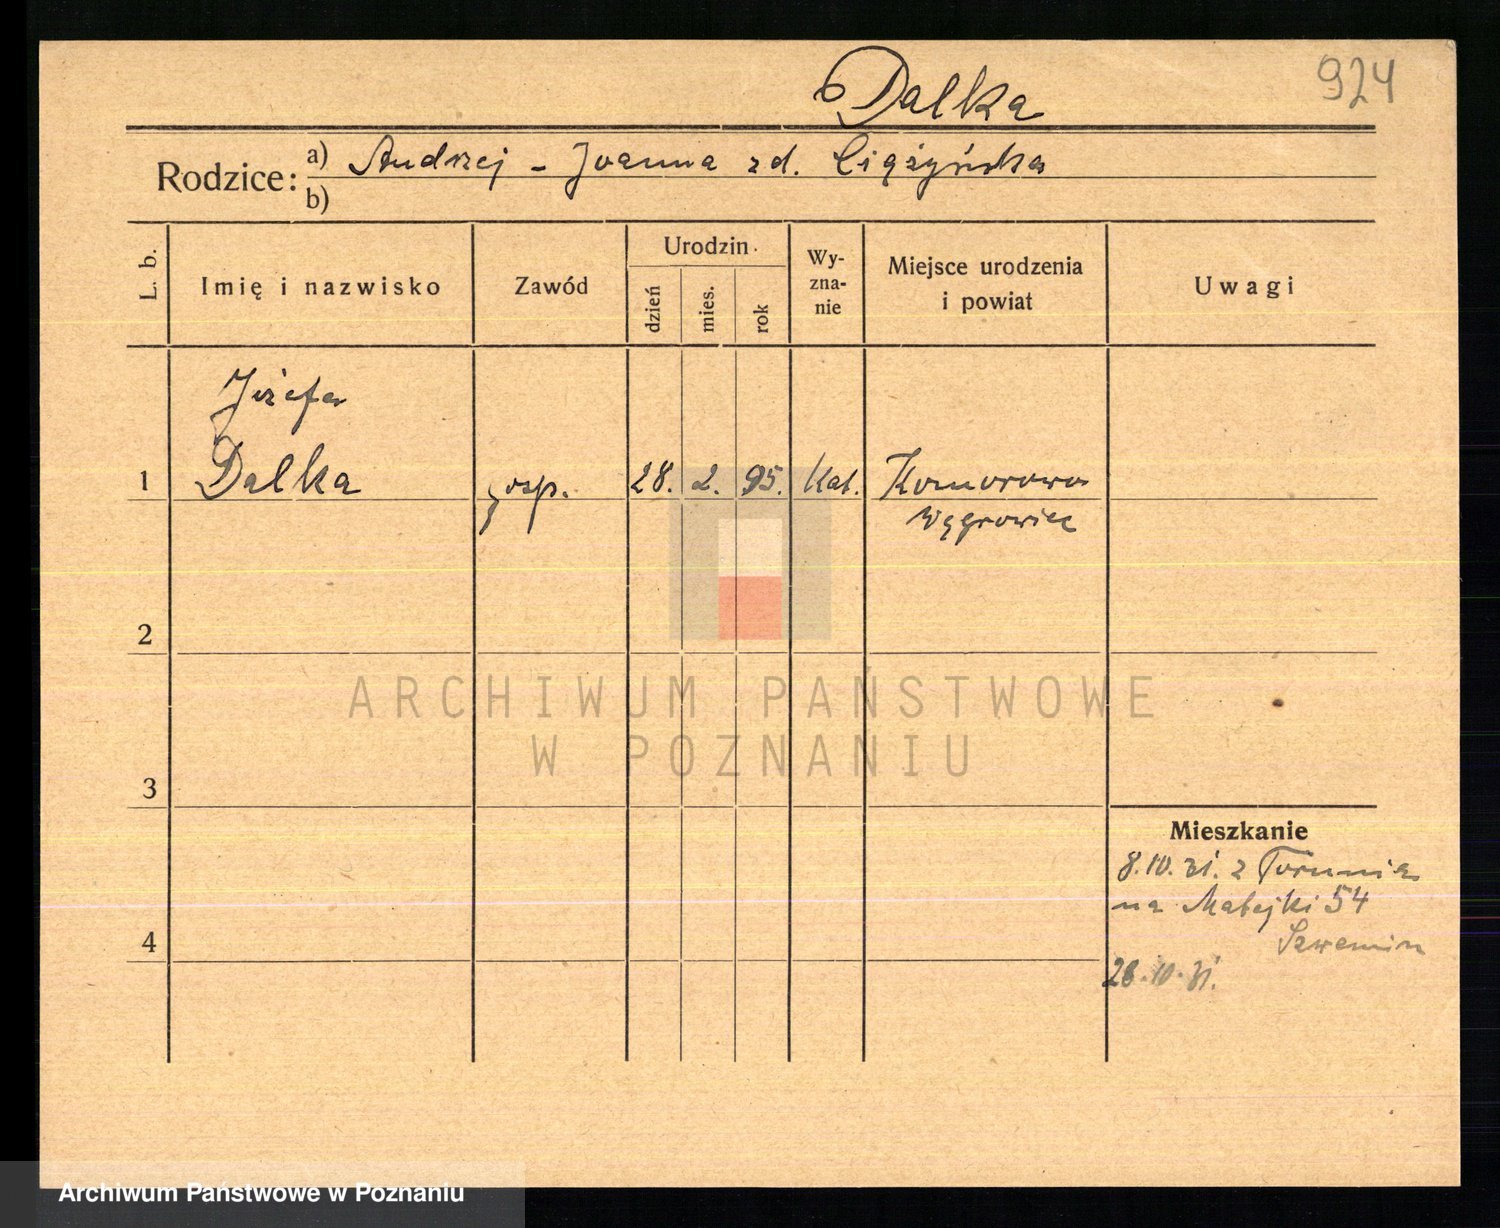 Dalka
924
Rodzice:
a) Andrzej - Joanna zd. Ciążyńska
b)
L. b.
Imię i nazwisko
Zawód
Urodzin
dzień
mies.
rok
Wy-
zna-
nie
Miejsce urodzenia
i powiat
Uwagi
Józefa
1 Dalka gosp. 28. 2. 95. kat. Komorowo
Wągrowiec
2
3
4
Mieszkanie
8.10.31. z Torunia
na Matejki 54
28.10.31.
ARCHIWUM PAŃSTWOWE
W POZNANIU
Archiwum Państwowe w Poznaniu